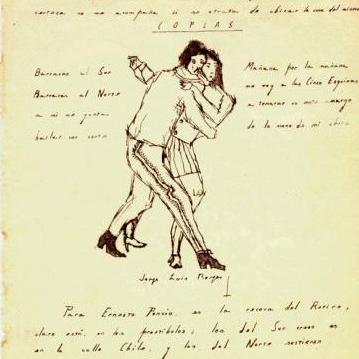 no me acompaña si no tratan de ubicar la casa del mismo
COPLAS
Barracas al Sur
Barracas al Norte
a mí me gusta
bailar con corte
Mañana por la mañana
me voy a las Cinco Esquinas
a tomar un mate amargo
de la mano de mi china
Jorge Luis Borges
Para Ernesto Poncio, en la cárcel del Rosario,
claro está, en los prostíbulos; los del Sur creen es
en la calle Chile, y los del Norte sostienen